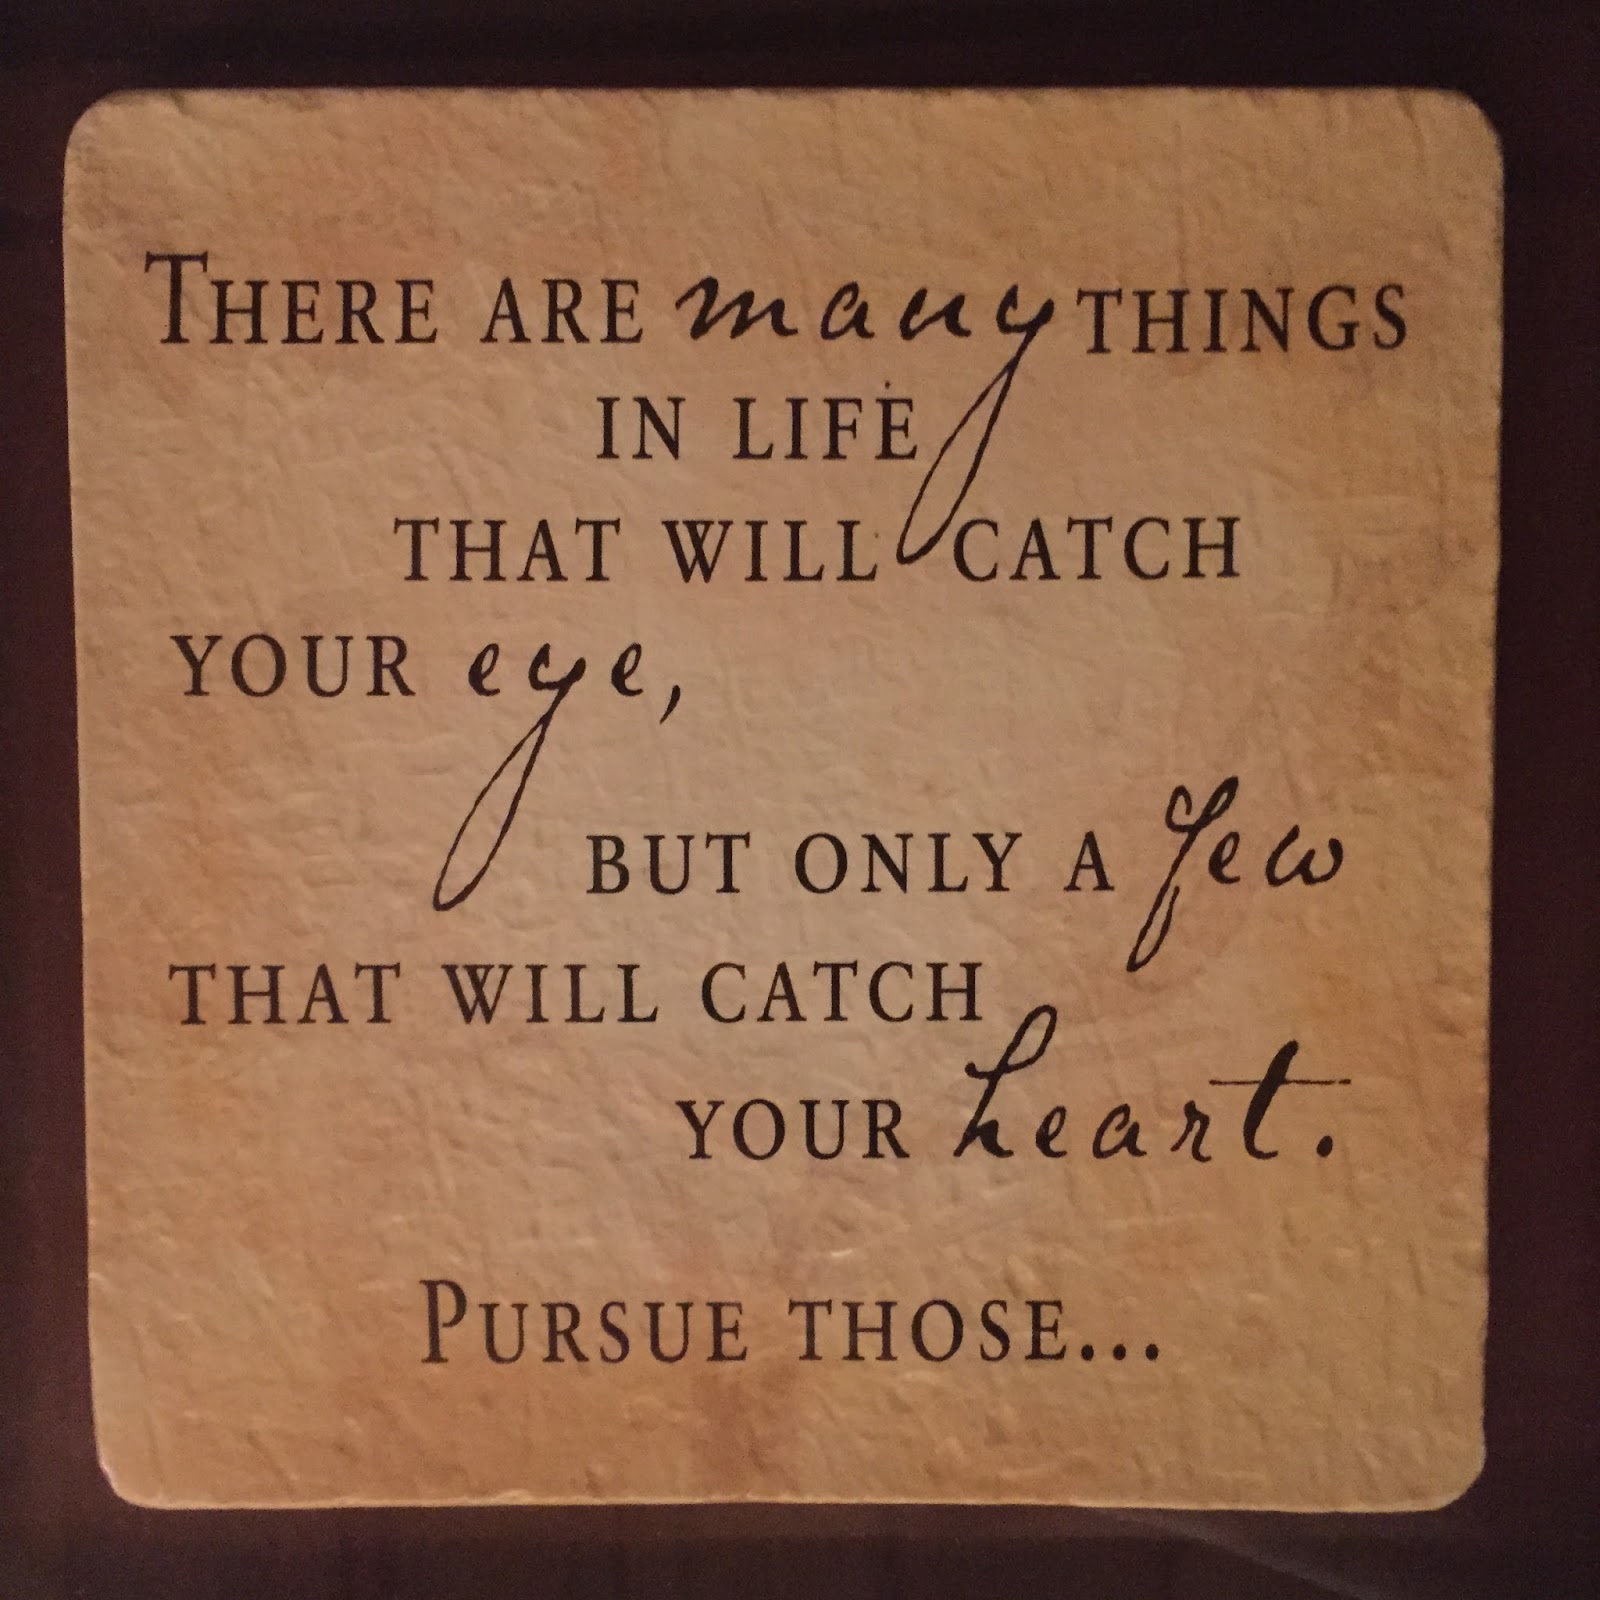 There are many things
in life
that will catch
your eye,
but only a few
that will catch
your heart.
Pursue those...